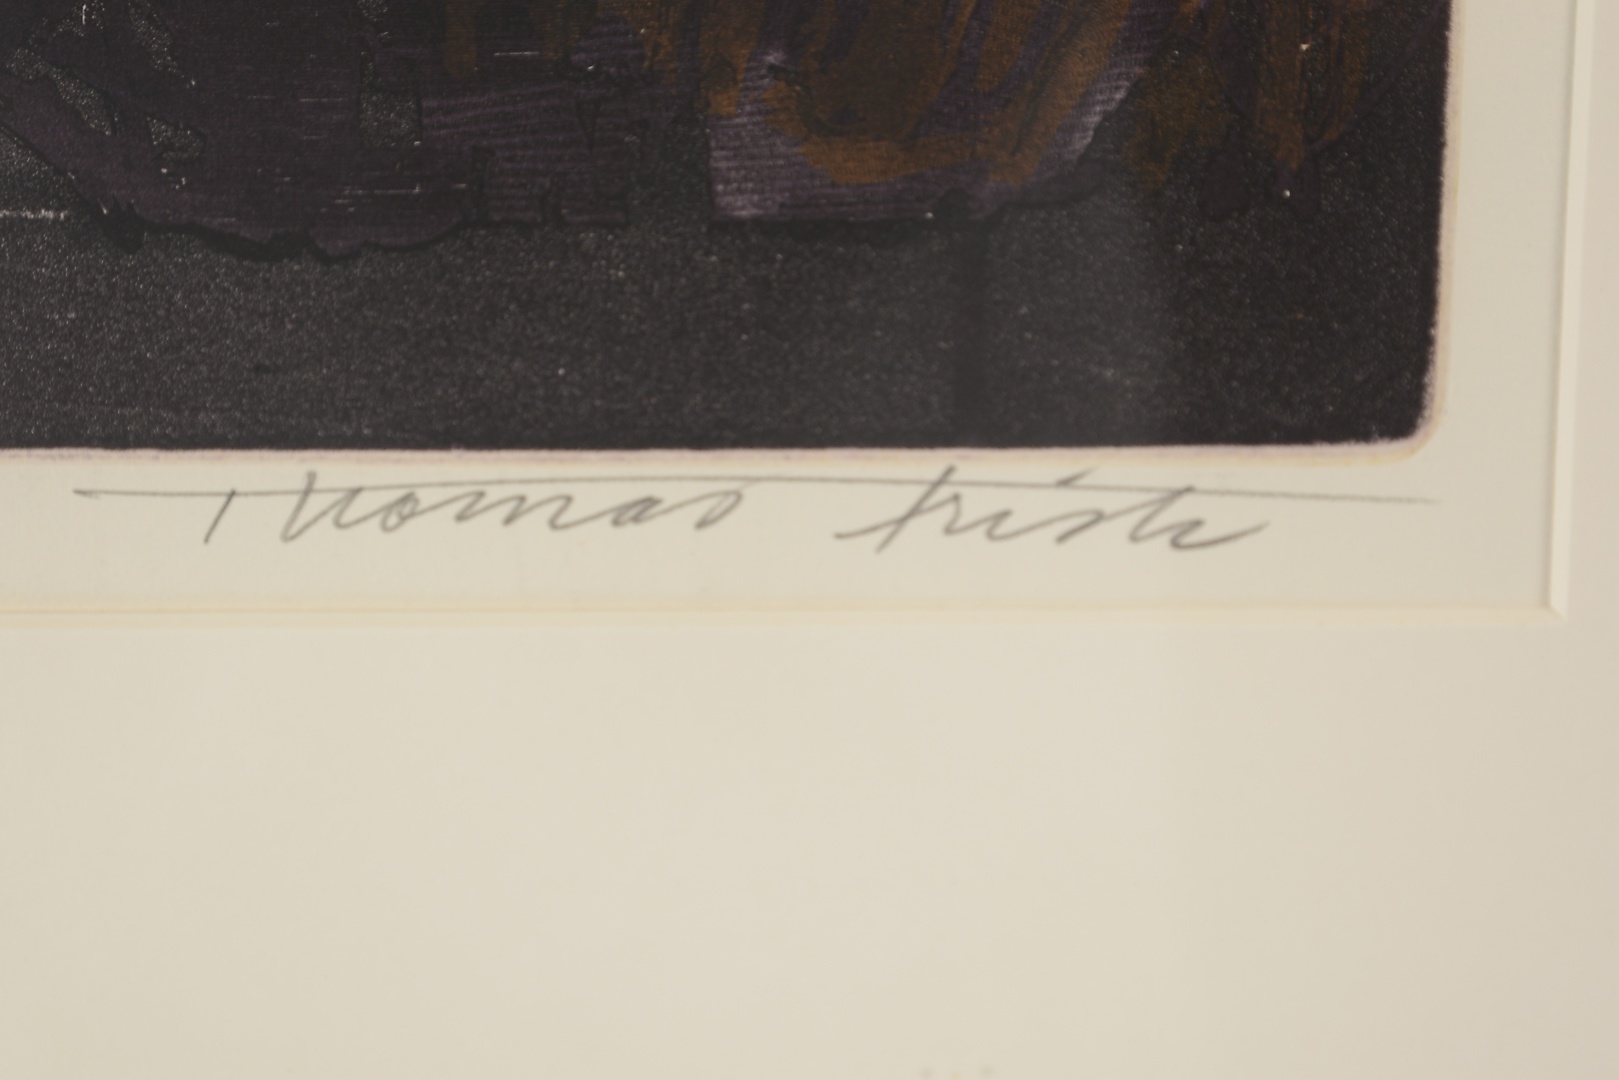 Thomas Frisk